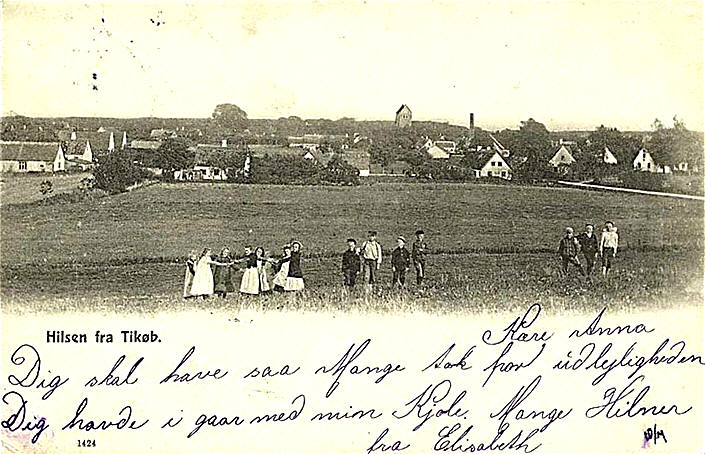 Hilsen fra Tikøb.
Kære Anna
Dig skal have saa Mange tak for udlyligheden
Dig havde i gaar med min Kjole. Mange Hilner
fra Elisabeth
1424